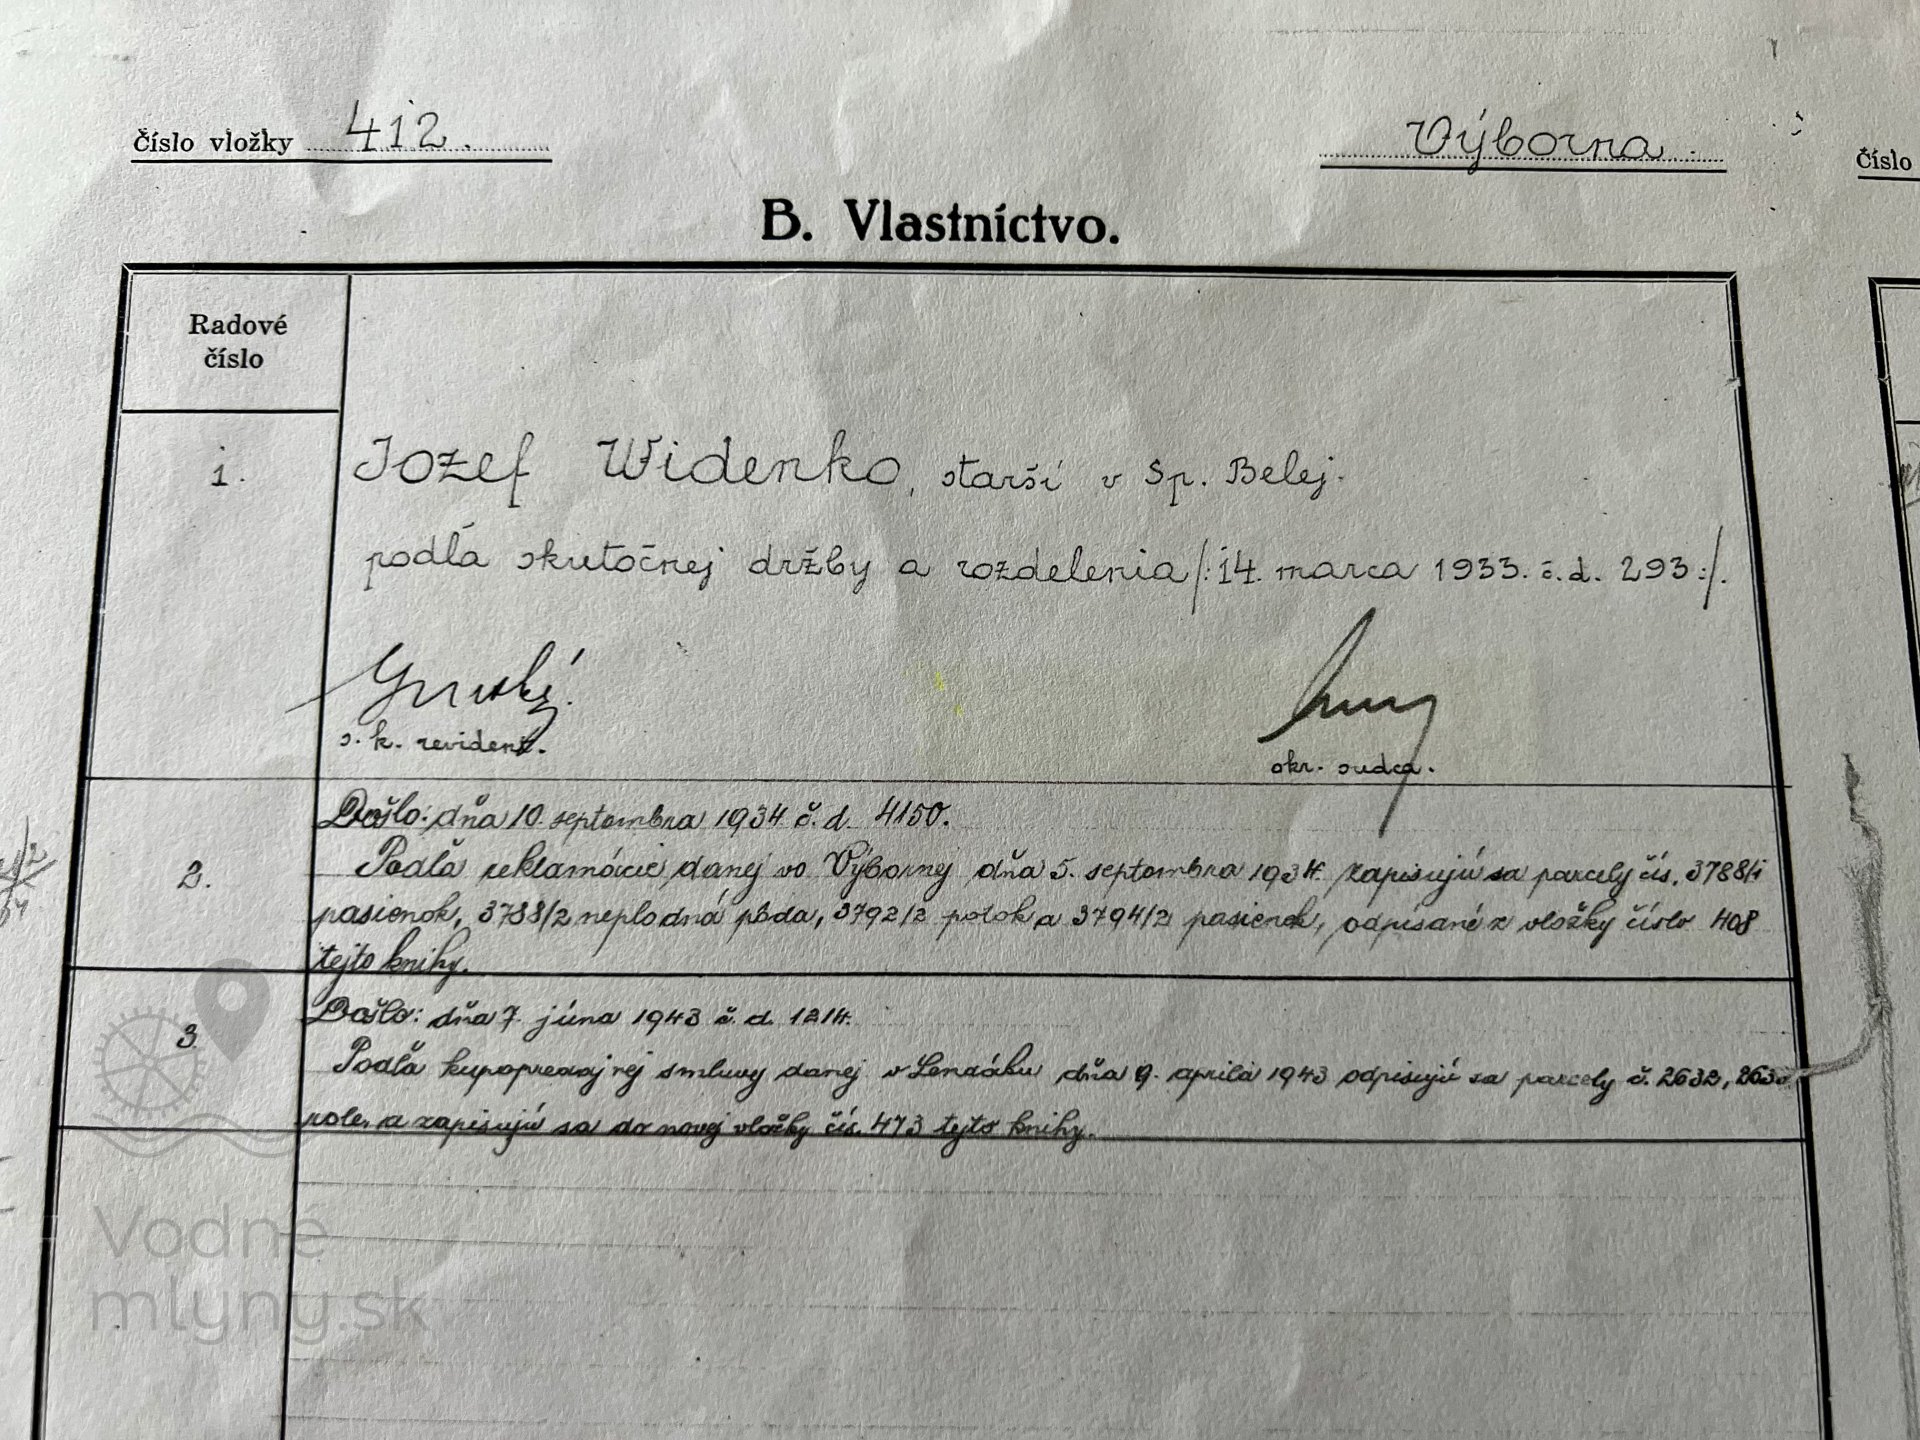 Číslo vložky 412.
Výborna
Číslo
B. Vlastníctvo.
Radové
číslo
1.
Jozef Widenko, starší v Sp. Belej.
podľa skutočnej držby a rozdelenia /:14. marca 1933. č. d. 293:/.
s. k. revident.
okr. sudca.
2.
Došlo: dňa 10. septembra 1934 č. d. 4150.
Podľa reklamácie danej vo Výbornej dňa 5. septembra 1934. zapisujú sa parcely čís. 3788/1
pasienok, 3788/2 neplodná pôda, 3792/2 potok a 3794/2 pasienok, odpísané z vložky číslo 408
tejto knihy.
3
Došlo: dňa 7. júna 1943 č. d. 1214.
Podľa kupopredajnej smluvy danej v Lendáku dňa 9. apríla 1943 odpisujú sa parcely č. 2632,
pole, a zapisujú sa do novej vložky čís. 473 tejto knihy.
Vodné
mlyny.sk